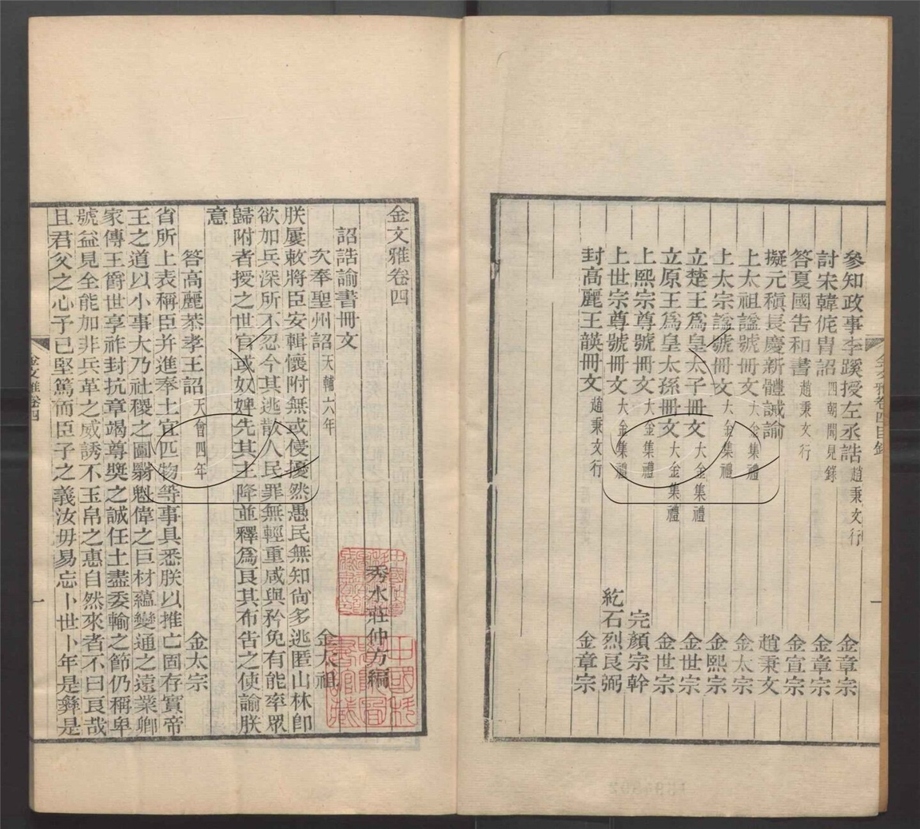 參知政事李蹊授左丞誥 趙秉文行 金章宗
討宋韓侂冑詔 四朝聞見錄 金章宗
答夏國告和書 趙秉文行 金宣宗
擬元稹長慶新體誡諭 趙秉文
上太祖諡號冊文 大金集禮 金太宗
上太宗諡號冊文 大金集禮 金熙宗
立楚王爲皇太子冊文 大金集禮 金世宗
立原王爲皇太孫冊文 大金集禮 金世宗
上熙宗尊號冊文 大金集禮 完顏宗幹
上世宗尊號冊文 大金集禮 紇石烈良弼
封高麗王韺冊文 趙秉文行 金章宗
金文雅卷四目錄
金文雅卷四
秀水莊仲方編
詔誥諭書冊文
次奉聖州詔 天輔六年 金太祖
朕屢敕將臣安輯懷附無或侵擾然愚民無知尙多逃匿山林卽
欲加兵深所不忍今其逃散人民罪無輕重咸與矜免有能率眾
歸附者授之世官或奴婢先其主降並釋爲良其布告之使諭朕
意
答高麗恭孝王詔 天會四年 金太宗
省所上表稱臣并進奉土宜匹物等事具悉朕以推亡固存實帝
王之道以小事大乃社稷之圖爾魁偉之巨材蘊變通之遠業鄉
家傳王爵世享祚封抗章竭尊獎之誠任土盡委輸之節仍稱卑
號益見全能加非兵革之威誘不玉帛之惠自然來者不曰良哉
且君父之心予已堅篤而臣子之義汝毋易忘卜世卜年是彝是
金文雅卷四
一